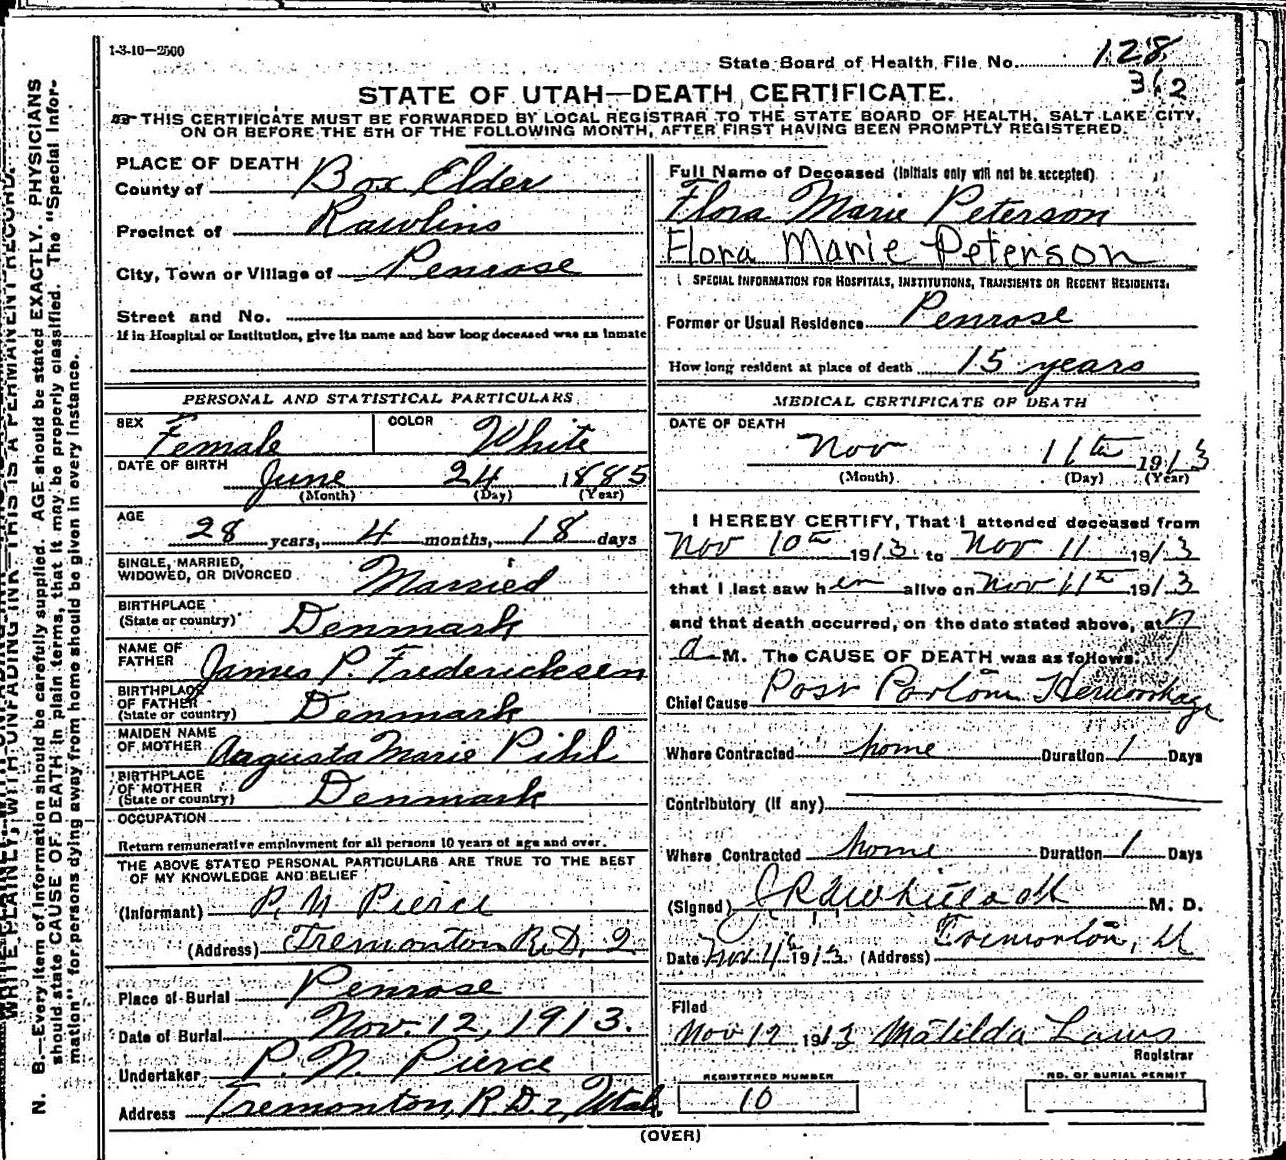 1-3-10—2500
State Board of Health File No. 128
312
STATE OF UTAH—DEATH CERTIFICATE.
THIS CERTIFICATE MUST BE FORWARDED BY LOCAL REGISTRAR TO THE STATE BOARD OF HEALTH, SALT LAKE CITY,
ON OR BEFORE THE 5TH OF THE FOLLOWING MONTH, AFTER FIRST HAVING BEEN PROMPTLY REGISTERED.
PLACE OF DEATH
County of Box Elder
Precinct of Rawlins
City, Town or Village of Penrose
Street and No.
If in Hospital or Institution, give its name and how long deceased was an inmate
PERSONAL AND STATISTICAL PARTICULARS
SEX Female COLOR White
DATE OF BIRTH June 24 1885
(Month) (Day) (Year)
AGE 28 years, 4 months, 18 days
SINGLE, MARRIED,
WIDOWED, OR DIVORCED Married
BIRTHPLACE
(State or country) Denmark
NAME OF
FATHER James P. Fredericksen
BIRTHPLACE
OF FATHER
(State or country) Denmark
MAIDEN NAME
OF MOTHER Augusta Marie Pihl
BIRTHPLACE
OF MOTHER
(State or country) Denmark
OCCUPATION
Return remunerative employment for all persons 10 years of age and over.
THE ABOVE STATED PERSONAL PARTICULARS ARE TRUE TO THE BEST
OF MY KNOWLEDGE AND BELIEF
(Informant) P. N. Pierce
(Address) Tremonton R.D. 2
Place of Burial Penrose
Date of Burial Nov-12, 1913.
Undertaker P. N. Pierce
Address Tremonton, R.D. 2, Utah
Full Name of Deceased (Initials only will not be accepted)
Flora Marie Peterson
Flora Marie Peterson
SPECIAL INFORMATION FOR HOSPITALS, INSTITUTIONS, TRANSIENTS OR RECENT RESIDENTS.
Former or Usual Residence Penrose
How long resident at place of death 15 years
MEDICAL CERTIFICATE OF DEATH
DATE OF DEATH
Nov 11th 1913
(Month) (Day) (Year)
I HEREBY CERTIFY, That I attended deceased from
Nov 10th 1913 to Nov 11 1913
that I last saw her alive on Nov 11th 1913
and that death occurred, on the date stated above, at 7
a M. The CAUSE OF DEATH was as follows:
Chief Cause Post Partom Hemorrhage
Where Contracted home Duration 1 Days
Contributory (if any)
Where Contracted home Duration 1 Days
(Signed) M. D.
Date Nov 1913 (Address) Tremonton, U
Filed
Nov 12 1913 Matilda Laws
Registrar
REGISTERED NUMBER
10
NO. OF BURIAL PERMIT
(OVER)
WRITE PLAINLY, WITH UNFADING INK—THIS IS A PERMANENT RECORD.
N. B.—Every item of information should be carefully supplied. AGE should be stated EXACTLY. PHYSICIANS
should state CAUSE OF DEATH in plain terms, that it may be properly classified. The "Special Infor-
mation" for persons dying away from home should be given in every instance.